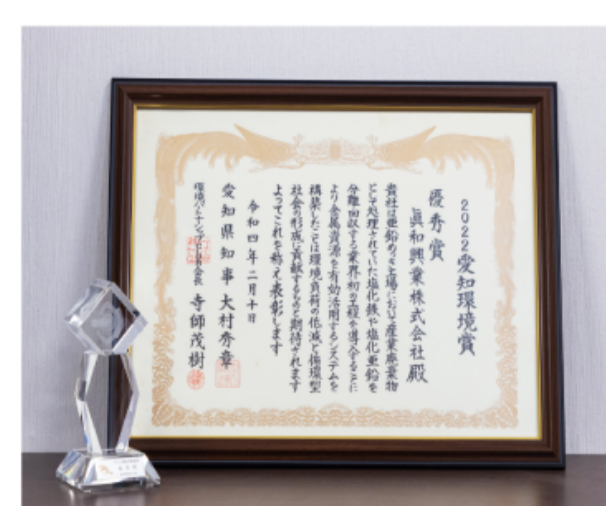 2022愛知環境賞
優秀賞
眞和興業株式会社殿
貴社は亜鉛めっき工場において産業廃棄物
として処理されていた塩化鉄や塩化亜鉛を
分離回収する業界初の工程を導入することに
より金属資源を有効活用するシステムを
構築したことは環境負荷の低減と循環型
社会の形成に貢献するものと期待されます
よってこれを称え表彰します
令和四年二月十日
愛知県知事 大村秀章
環境パートナーシップ・CLUB会長 寺師茂樹